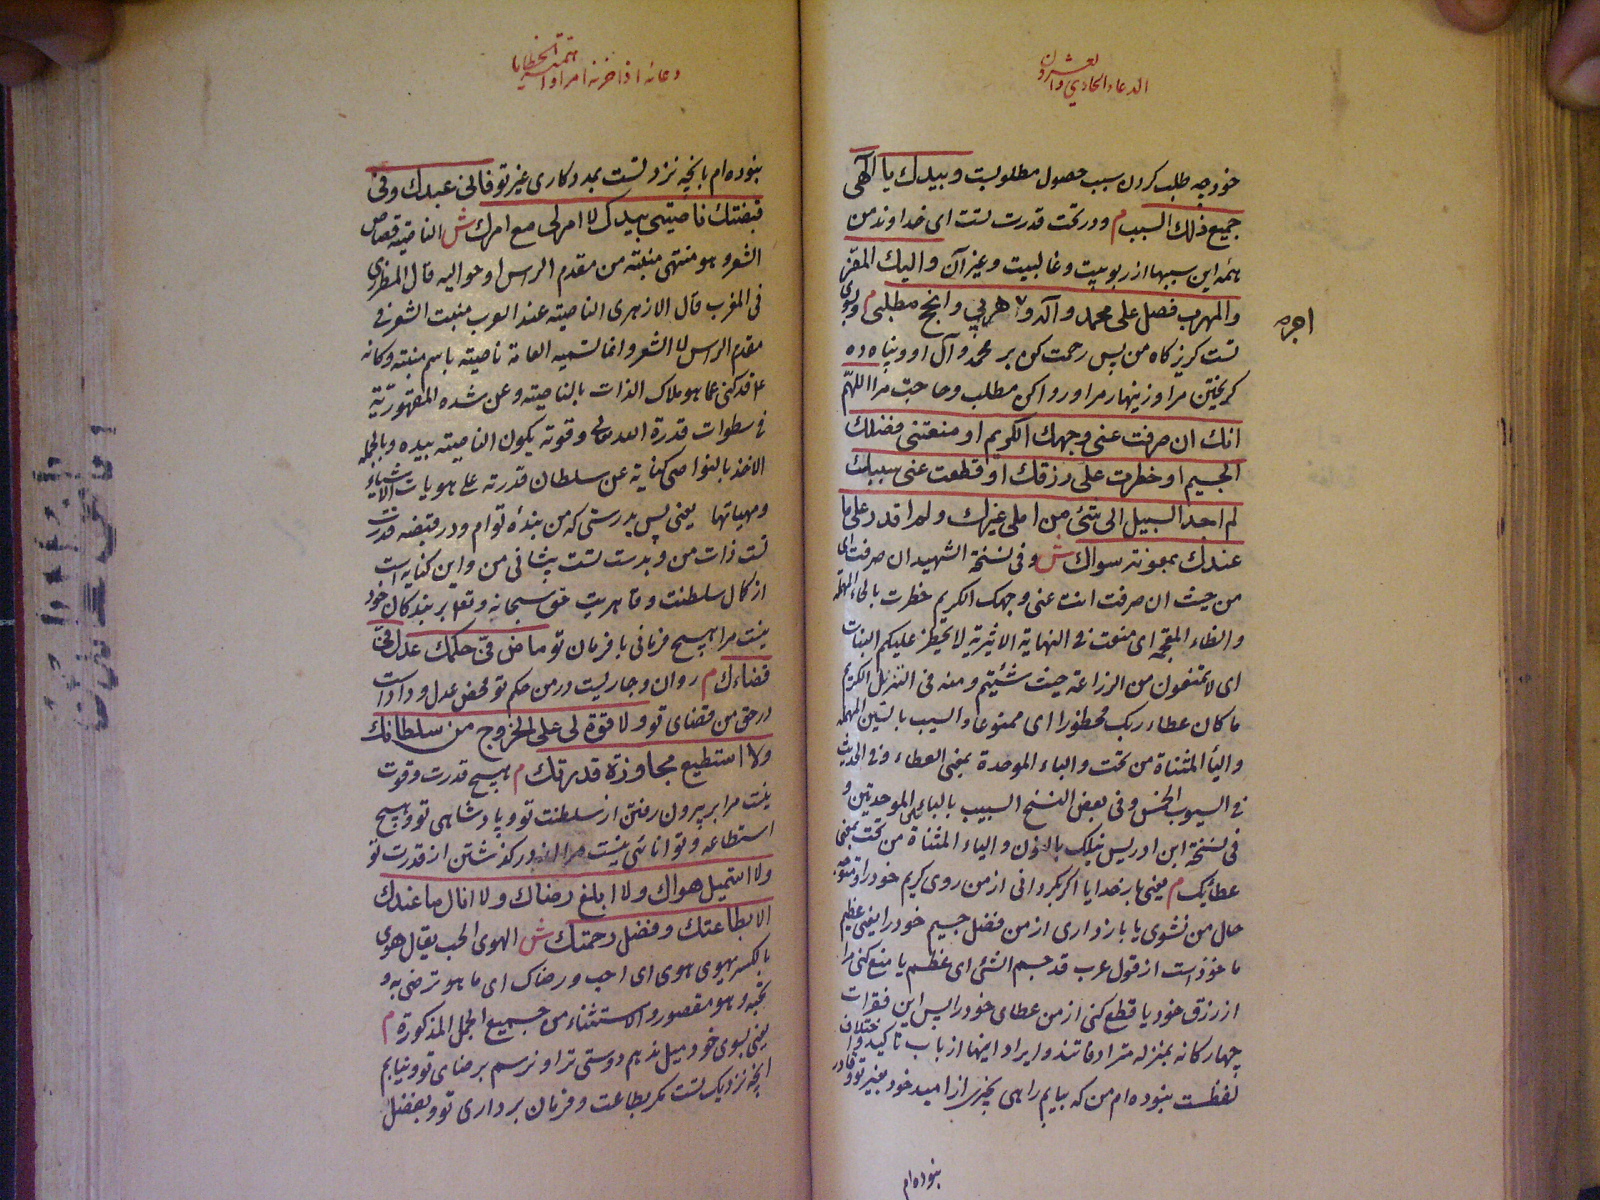 الدعاء الحادي والعشرون
خود چه طلب كردن سبب حصول مطلوبست وبيدك يا الهى
جميع ذلك السبب م ودر تحت قدرت تست اى خداوند من
همه اين سببها از ربوبيت وغالبيت وغير آن واليك المفر
والمهرب فصل على محمد وآله واجر هربي وانجح مطلبى م وبسوى
اجره
تست كريزكاه من پس رحمت كن بر محمد وآل او وپناه ده
كريختن مرا وزينهار مرا وروا كن مطلب وحاجت مرا اللهم
انك ان صرفت عنى وجهك الكريم او منعتنى فضلك
الجسيم او حظرت على رزقك او قطعت عنى سببك
لم اجد السبيل الى شئ من املى غيرك ولم اقدر على ما
عندك بمعونة سواك ش وفى نسخة الشهيد ان صرفت اى
من حيث ان صرفت انت عنى وجهك الكريم حظرت بالحاء المهملة
والظاء المعجمة اى منعت فى النهاية الاثيرية لا يحظر عليكم النبات
اى لا تمنعون من الزراعة حيث شئتم ومنه فى التنزيل الكريم
ما كان عطاء ربك محظورا اى ممنوعا والسيب بالسين المهملة
والياء المثناة من تحت والباء الموحدة بمعنى العطاء وفى الحديث
فى السيوب الخمس وفى بعض النسخ السبب بالبائين الموحدتين و
فى نسخة ابن ادريس نيلك بالنون والياء المثناة من تحت بمعنى
عطائك م يعنى بار خدايا اكر بكردانى از من روى كريم خود را ومتوجه
حال من نشوى يا باز دارى از من فضل جسيم خود را يعنى عظيم
ماخوذ است از قول عرب قد جسم الشئ اى عظم يا منع كنى مرا
از رزق خود يا قطع كنى از من عطاى خود را پس اين فقرات
چهار كانه بمنزله مترادفاتند وايراد اينها از باب تاكيد واختلاف
لفظست بنوده ام من كه بيابم راهى بچيزى از اميد خود بغير تو وقادر
بنوده ام
دعائه اذا حزنه امر واهمته الخطايا
بنوده ام بانچه نزد تست بمددكارى غير تو فانى عبدك وفى
قبضتك ناصيتى بيدك لا امر لى مع امرك ش الناصية قصاص
الشعر وهو منتهى منبته من مقدم الراس او حواليه قال المطرزى
فى المغرب قال الازهرى الناصية عند العرب منبت الشعر فى
مقدم الراس لا الشعر وانما تسميه العامة ناصية باسم منبته وكانه
قد كنى عما هو ملاك الذات بالناصية وعن شدة المقهورية
فى سطوات قدرة الله تعالى وقوته بكون الناصية بيده وبالجملة
الاخذ بالنواصى كناية عن سلطان قدرته على هويات الاشياء
ومهياتها يعنى پس بدرستى كه من بنده توام ودر قبضه قدرت
تست ذات من وبدست تست پيشانى من واين كنايه است
از كمال سلطنت وقاهريت حق سبحانه وتعالى بر بندكان خود
نيست مرا هيچ فرمانى با فرمان تو ماض فى حكمك عدل فى
قضاءك م روان وجاريست در من حكم تو محض عدل وداد است
در حق من قضاى تو ولا قوة لى على الخروج من سلطانك
ولا استطيع مجاوزة قدرتك م هيچ قدرت وقوت
نيست مرا بر بيرون رفتن از سلطنت تو وپادشاهى تو وهيچ
استطاعه وتوانائى نيست مرا در كذشتن از قدرت تو
ولا استميل هواك ولا ابلغ رضاك ولا انال ما عندك
الا بطاعتك وفضل رحمتك ش الهوى الحب يقال هوى
بالكسر يهوى هوى اى احب ورضاك اى ما هو ترضى به و
تحبه وهو مقصور والاستثناء من جميع الجمل المذكورة م
يعنى بسوى خود ميل ندهم دوستى ترا ونرسم برضاى تو ونيابم
آنچه نزديك تست مكر بطاعت وفرمان بردارى تو وبفضل